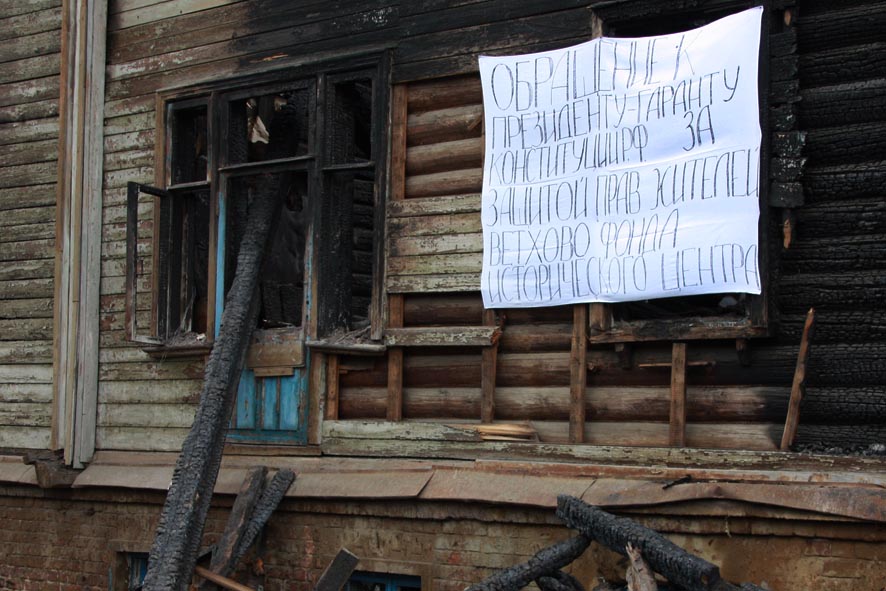 ОБРАЩЕНИЕ К
ПРЕЗИДЕНТУ-ГАРАНТУ
КОНСТИТУЦИИ.РФ ЗА
ЗАЩИТОЙ ПРАВ ЖИТЕЛЕЙ
ВЕТХОВО ФОНДА
ИСТОРИЧЕСКОГО ЦЕНТРА